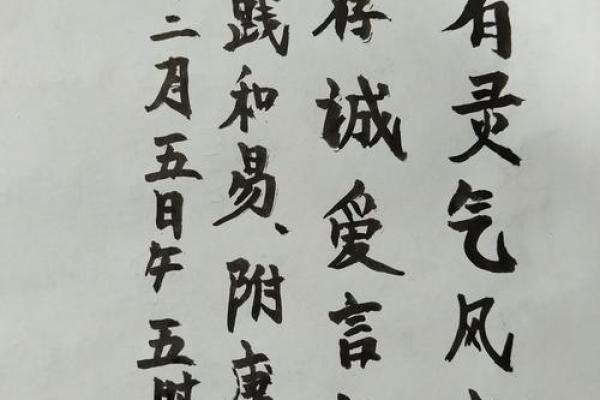 有灵气风
存诚爱言
践和易、附康
二月五日午五时